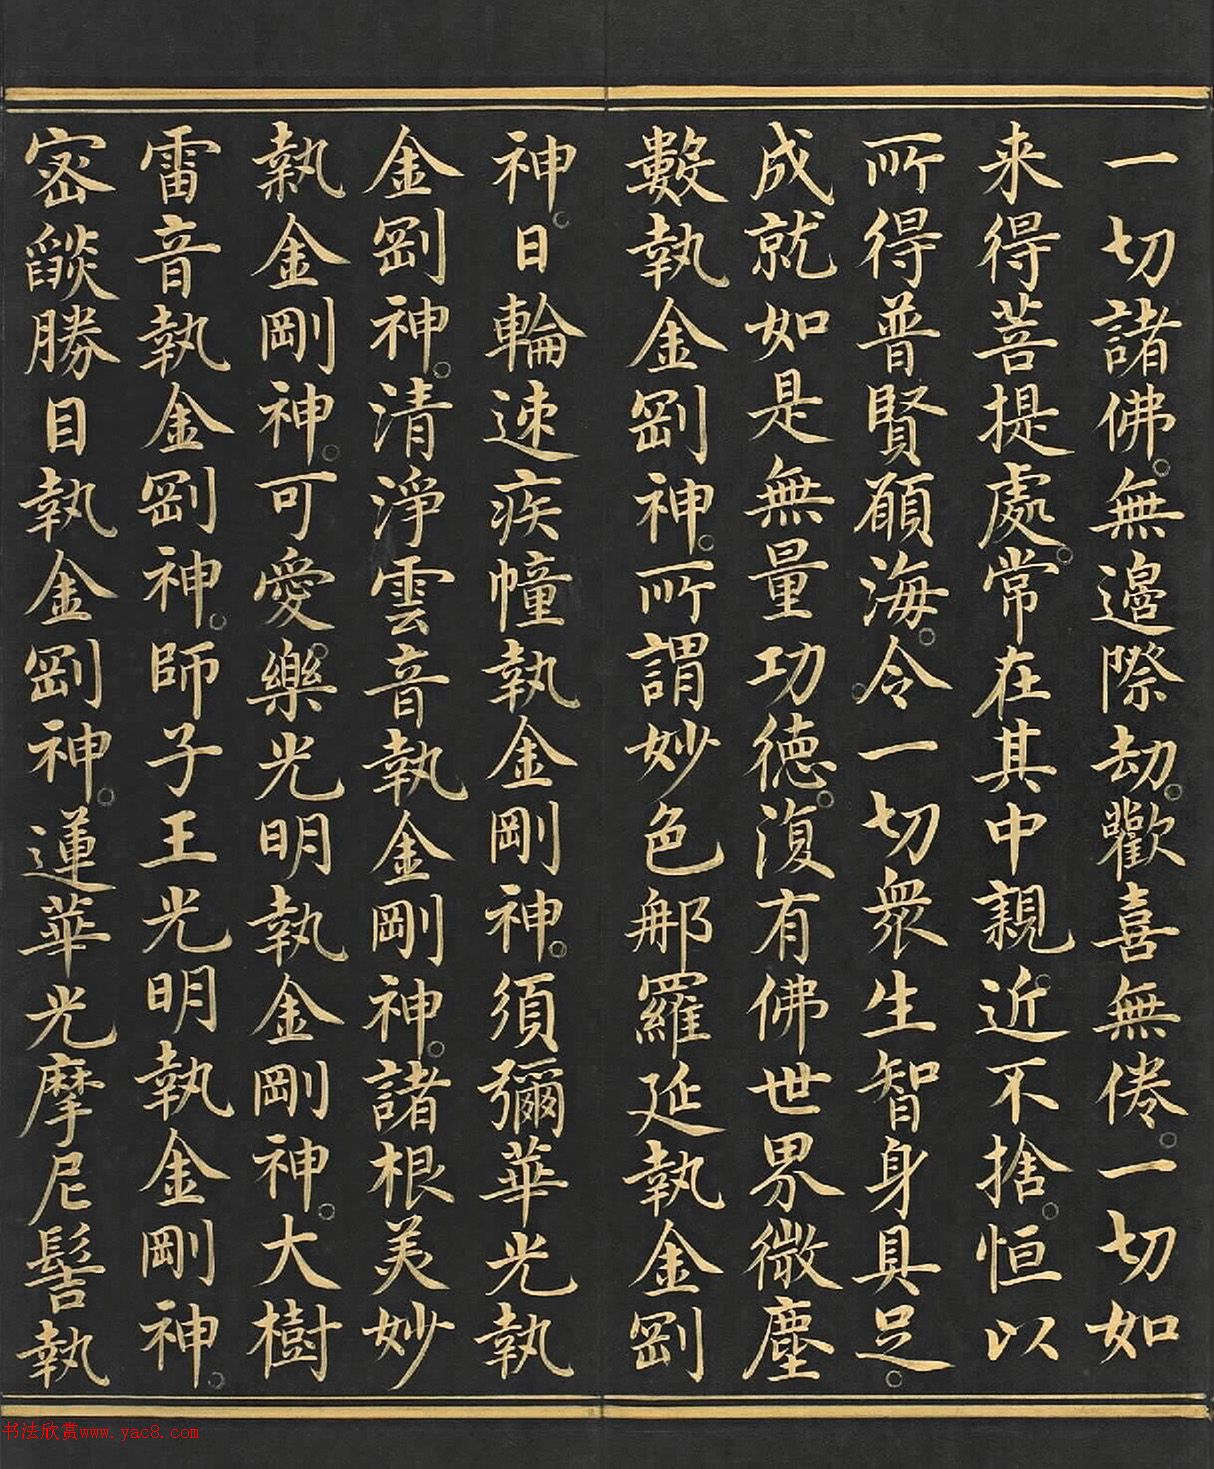 一切諸佛。無邊際劫。歡喜無倦。一切如
来得菩提處。常在其中親近。不捨。恒以
所得普賢願海。令。一切衆生智身具足。
成就如是無量功德。復有佛世界微塵
數執金剛神。所謂妙色那羅延執金剛
神。日輪速疾幢執金剛神。須彌華光執
金剛神。清淨雲音執金剛神。諸根美妙
執金剛神。可愛樂光明執金剛神。大樹
雷音執金剛神。師子王光明執金剛神。
密燄勝目執金剛神。蓮華光摩尼髻執
书法欣赏www.yac8.com